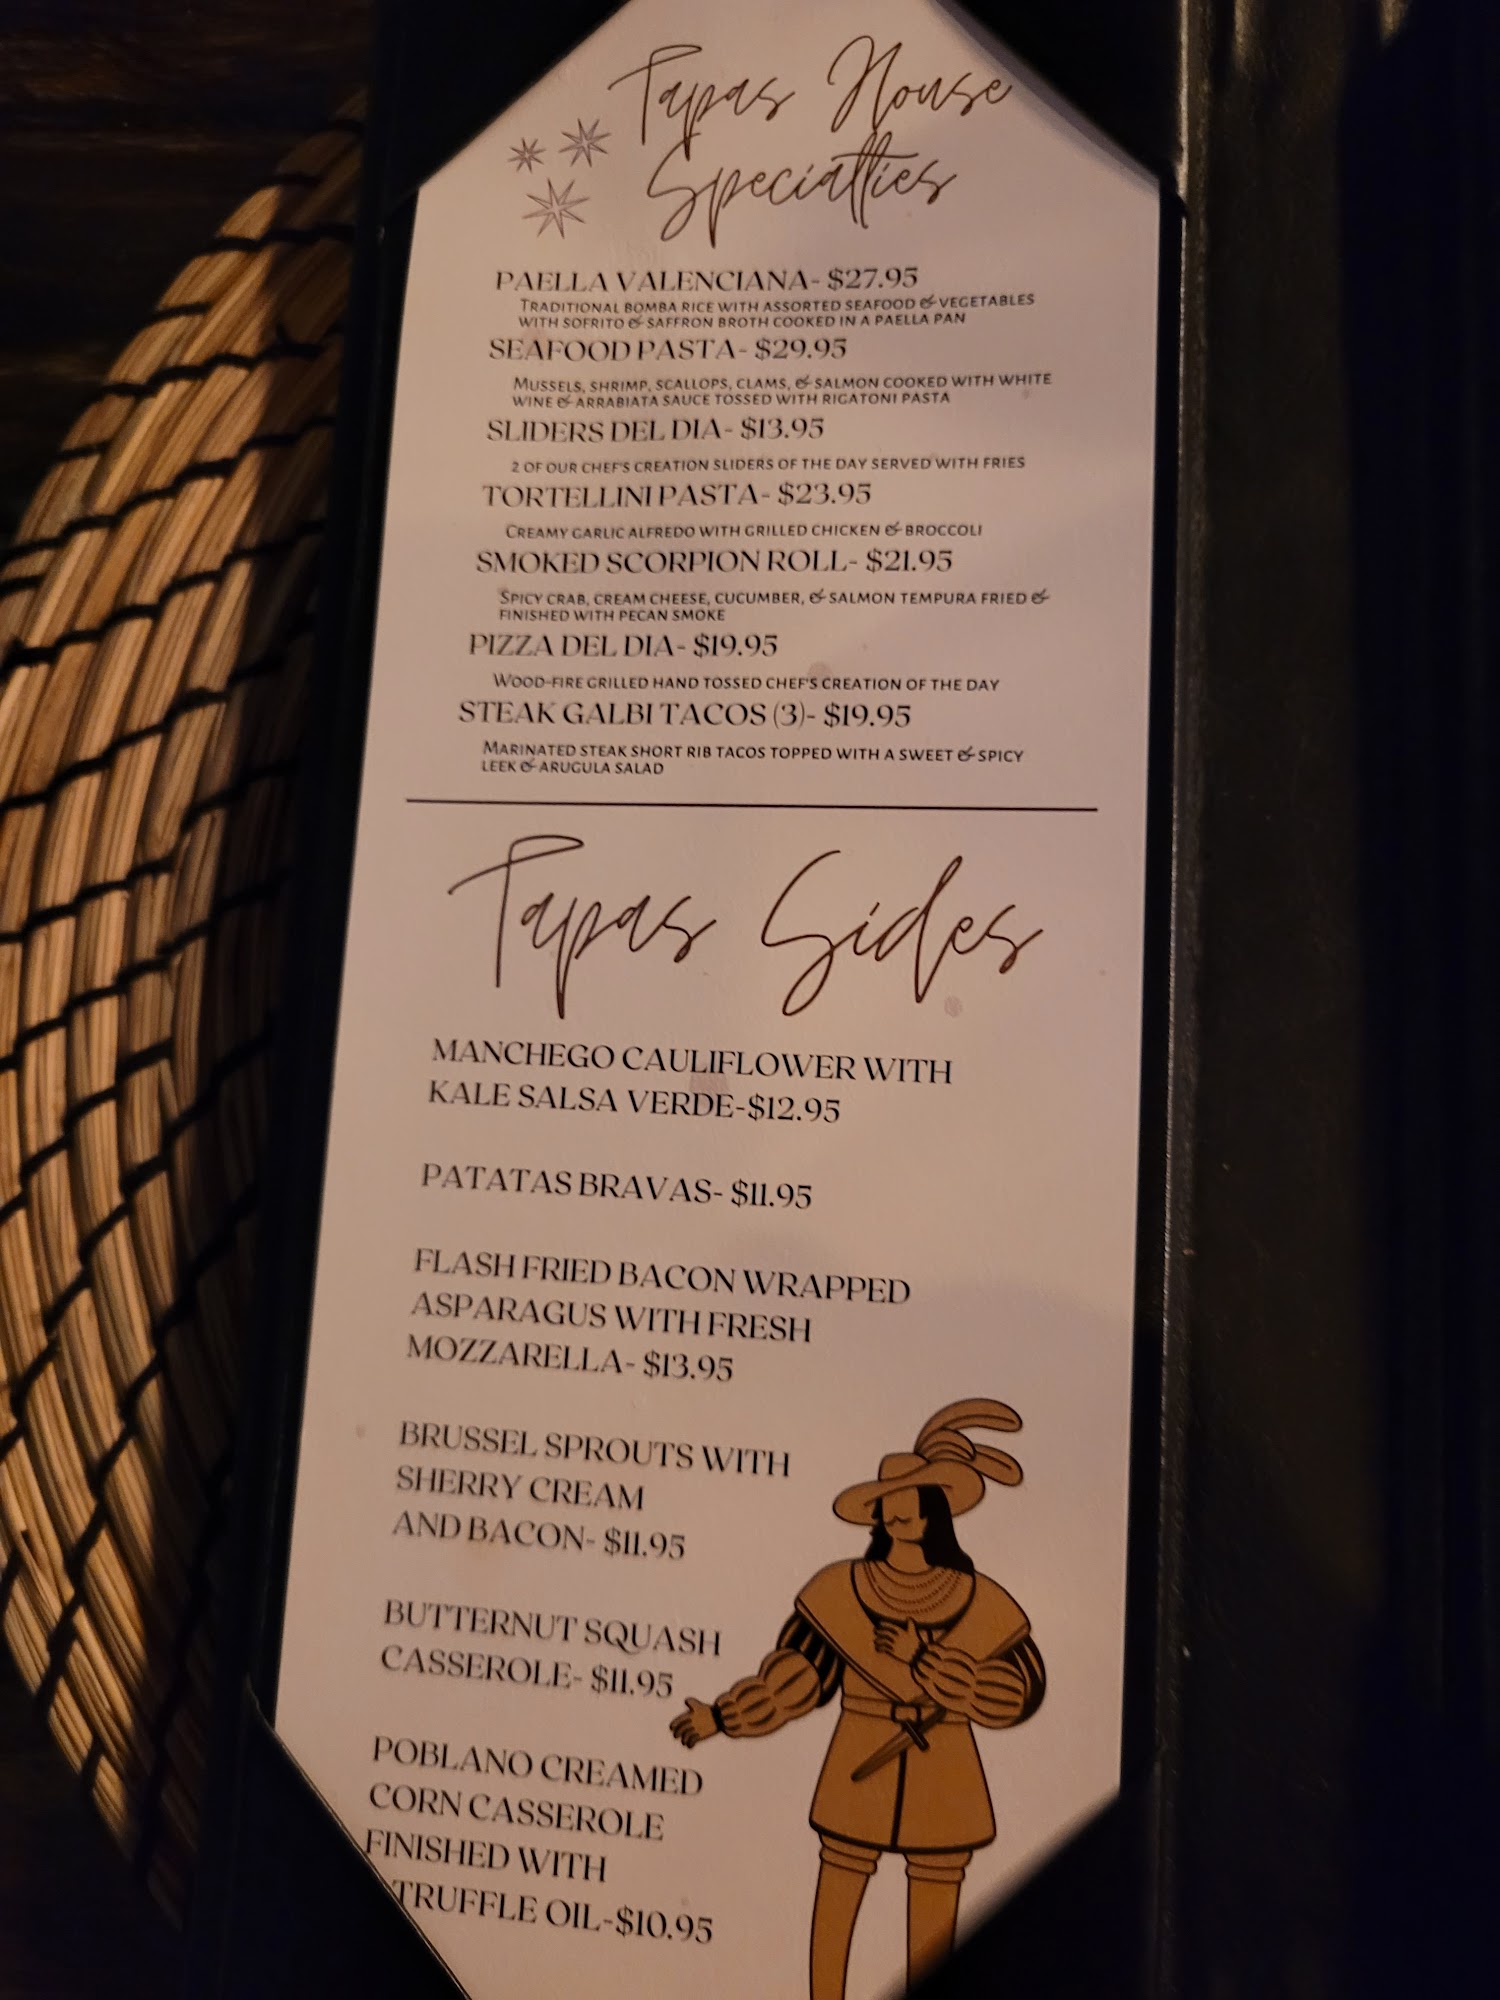 Tapas House
Specialties
PAELLA VALENCIANA- $27.95
TRADITIONAL BOMBA RICE WITH ASSORTED SEAFOOD & VEGETABLES
WITH SOFRITO & SAFFRON BROTH COOKED IN A PAELLA PAN
SEAFOOD PASTA- $29.95
MUSSELS, SHRIMP, SCALLOPS, CLAMS, & SALMON COOKED WITH WHITE
WINE & ARRABIATA SAUCE TOSSED WITH RIGATONI PASTA
SLIDERS DEL DIA- $13.95
2 OF OUR CHEF'S CREATION SLIDERS OF THE DAY SERVED WITH FRIES
TORTELLINI PASTA- $23.95
CREAMY GARLIC ALFREDO WITH GRILLED CHICKEN & BROCCOLI
SMOKED SCORPION ROLL- $21.95
SPICY CRAB, CREAM CHEESE, CUCUMBER, & SALMON TEMPURA FRIED &
FINISHED WITH PECAN SMOKE
PIZZA DEL DIA- $19.95
WOOD-FIRE GRILLED HAND TOSSED CHEF'S CREATION OF THE DAY
STEAK GALBI TACOS (3)- $19.95
MARINATED STEAK SHORT RIB TACOS TOPPED WITH A SWEET & SPICY
LEEK & ARUGULA SALAD
Tapas Sides
MANCHEGO CAULIFLOWER WITH
KALE SALSA VERDE-$12.95
PATATAS BRAVAS- $11.95
FLASH FRIED BACON WRAPPED
ASPARAGUS WITH FRESH
MOZZARELLA- $13.95
BRUSSEL SPROUTS WITH
SHERRY CREAM
AND BACON- $11.95
BUTTERNUT SQUASH
CASSEROLE- $11.95
POBLANO CREAMED
CORN CASSEROLE
FINISHED WITH
TRUFFLE OIL-$10.95